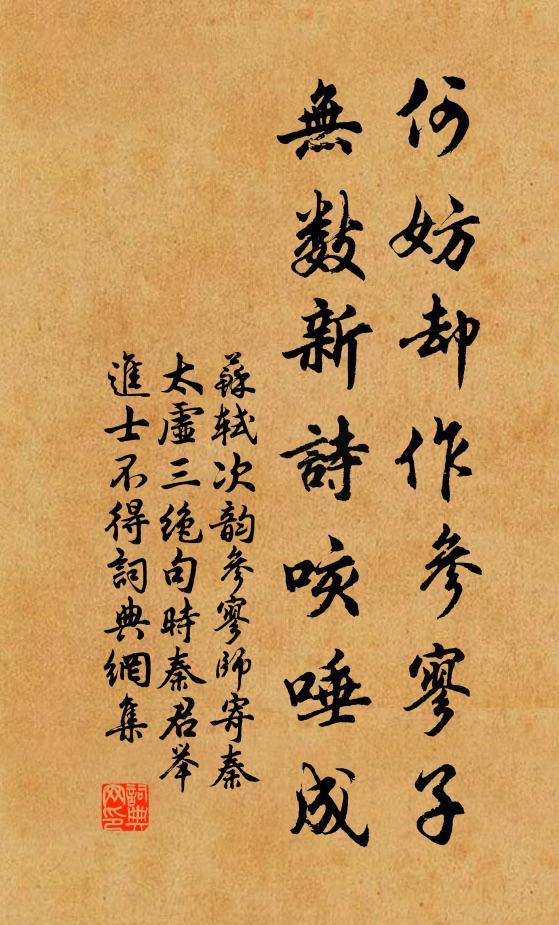 何妨却作參寥子
無數新詩咳唾成
蘇軾次韵參寥師寄秦
太虛三絶句時秦君举
進士不得詞典網集
詞典
网印